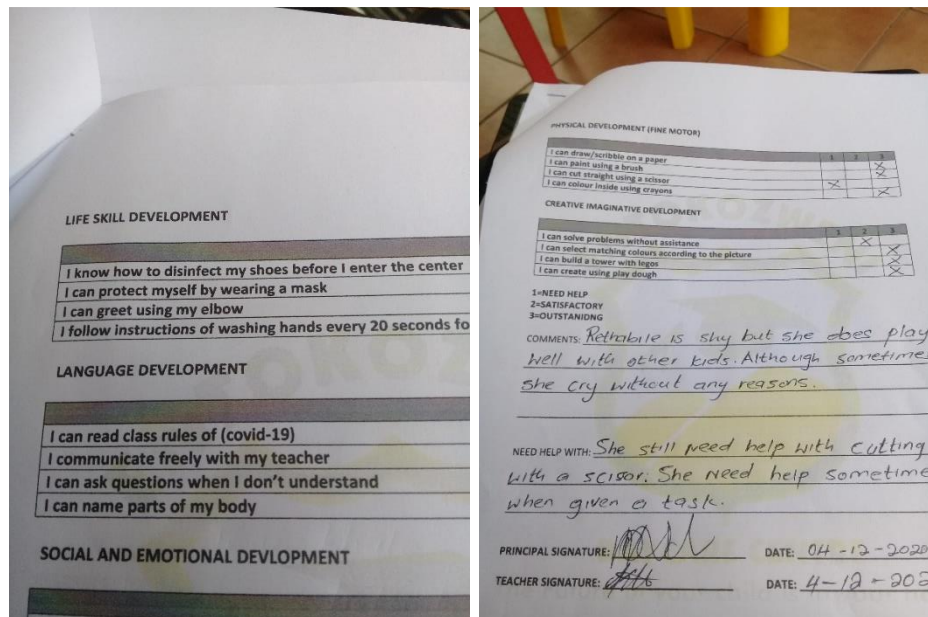 LIFE SKILL DEVELOPMENT
I know how to disinfect my shoes before I enter the center
I can protect myself by wearing a mask
I can greet using my elbow
I follow instructions of washing hands every 20 seconds fo
LANGUAGE DEVELOPMENT
I can read class rules of (covid-19)
I communicate freely with my teacher
I can ask questions when I don't understand
I can name parts of my body
SOCIAL AND EMOTIONAL DEVLOPMENT
PHYSICAL DEVELOPMENT (FINE MOTOR)
1 2 3
I can draw/scribble on a paper
I can paint using a brush
I can cut straight using a scissor
I can colour inside using crayons
CREATIVE IMAGINATIVE DEVELOPMENT
1 2 3
I can solve problems without assistance
I can select matching colours according to the picture
I can build a tower with legos
I can create using play dough
1=NEED HELP
2=SATISFACTORY
3=OUTSTANIDNG
COMMENTS: Rethabile is shy but she does play
well with other kids. Although sometime
she cry without any reasons.
NEED HELP WITH: She still need help with cutting
with a scisor. She need help sometime
when given a task.
PRINCIPAL SIGNATURE: DATE: 04-12-2020
TEACHER SIGNATURE: DATE: 4-12-202